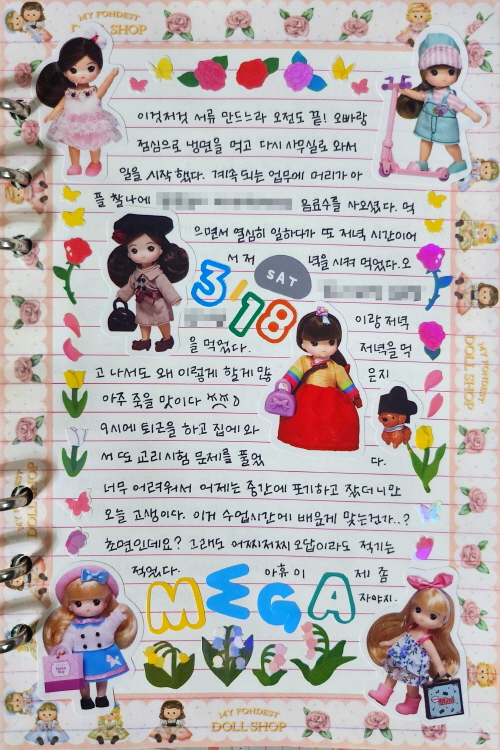 MY FONDEST
DOLL SHOP
이것저것 서류 만드느라 오전도 끝! 오빠랑
점심으로 냉면을 먹고 다시 사무실로 와서
일을 시작 했다. 계속 되는 업무에 머리가 아
플 찰나에 음료수를 사오셨다. 먹
으면서 열심히 일하다가 또 저녁 시간이어
서 저 녁을 시켜 먹었다. 오
SAT
3/18
이랑 저녁
을 먹었다. 저녁을 먹
고 나서도 왜 이렇게 할게 많 은지
아주 죽을 맛이다
9시에 퇴근을 하고 집에 와
서 또 교리시험 문제를 풀었 다.
너무 어려워서 어제는 중간에 포기하고 잤더니만
오늘 고생이다. 이거 수업시간에 배운게 맞는건가..?
초면인데요? 그래도 어찌저찌 오답이라도 적기는
적었다. 아휴 이 제 좀
자야지.
MEGA
MY FONDEST
DOLL SHOP
MY FONDEST
DOLL SHOP